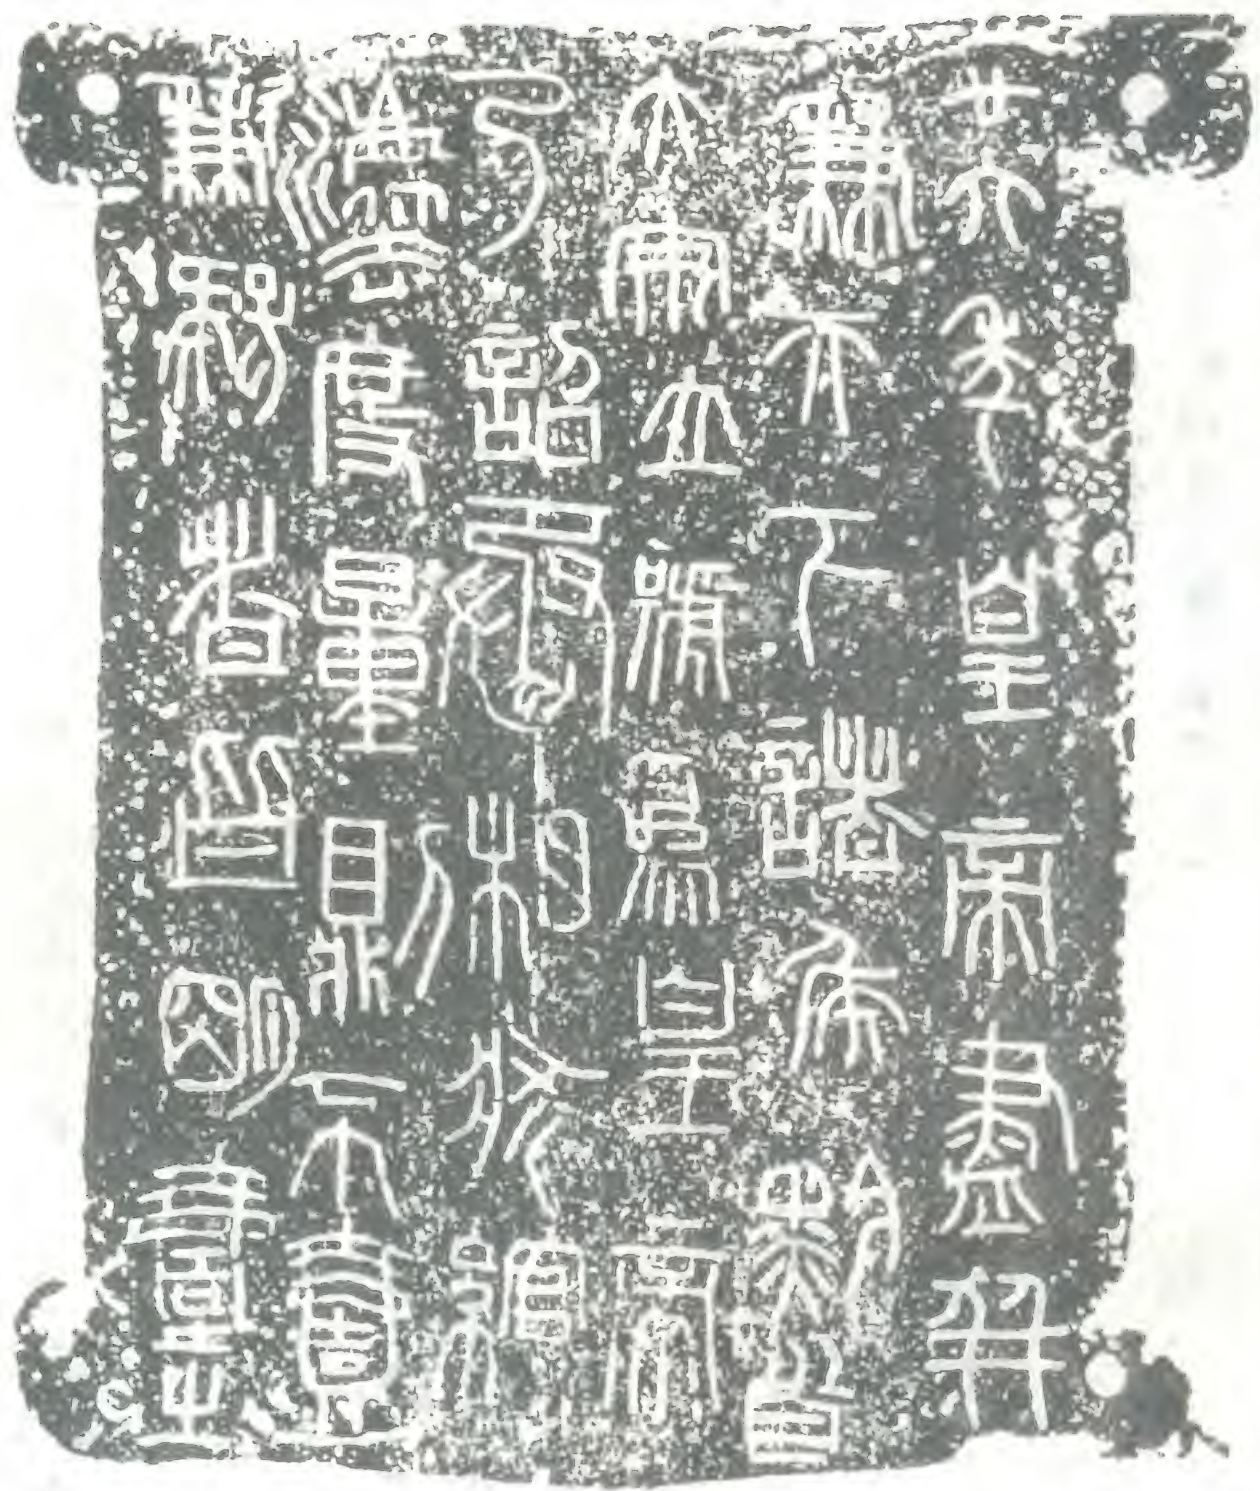 廿六年皇帝盡并
兼天下諸矦黔首
大安立號爲皇帝
乃詔丞相狀綰
灋度量則不壹
歉疑者皆明壹之